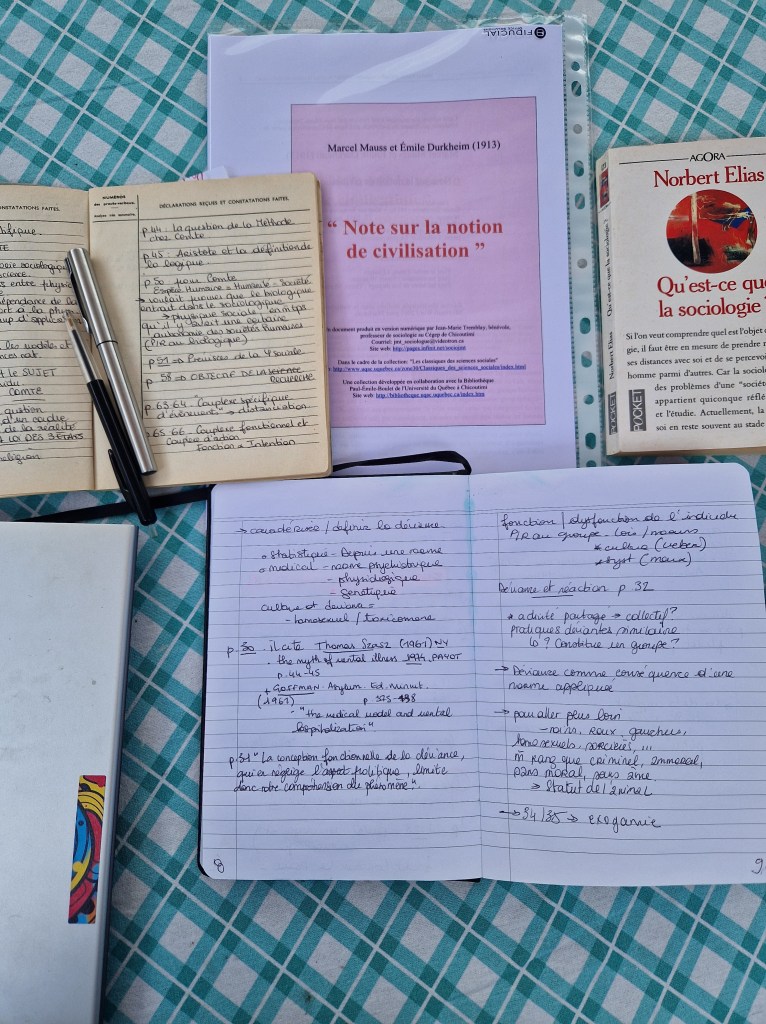 FIDUCIAL
Marcel Mauss et Émile Durkheim (1913)
“ Note sur la notion
de civilisation ”
Un document produit en version numérique par Jean-Marie Tremblay, bénévole,
professeur de sociologie au Cégep de Chicoutimi
Courriel: jmt_sociologue@videotron.ca
Site web: http://pages.infinit.net/sociojmt
Dans le cadre de la collection: "Les classiques des sciences sociales"
http://www.uqac.uquebec.ca/zone30/Classiques_des_sciences_sociales/index.html
Une collection développée en collaboration avec la Bibliothèque
Paul-Émile-Boulet de l'Université du Québec à Chicoutimi
Site web: http://bibliotheque.uqac.uquebec.ca/index.htm
AGORA
Norbert Elias
Qu'est-ce que
la sociologie ?
Si l'on veut comprendre quel est l'objet
gie, il faut être en mesure de prendre
ses distances avec soi et de se percevoir
homme parmi d'autres. Car la sociolo
des problèmes d'une "société"
appartient quiconque réfléc
et l'étudie. Actuellement, la
soi en reste souvent au stade
Norbert Elias Qu'est-ce que la sociologie ?
POCKET
POCKET
CONSTATATIONS FAITES.
LE SUJET
COMTE
LOI DES 3 ETATS
religion
NUMÉROS
des procès-verbaux.
DÉCLARATIONS REÇUES ET CONSTATATIONS FAITES.
p.44 : la question de la Méthode
chez Comte
p.45 : Aristote et la définition de
la logique.
p.50 pour Comte
Esprit Humaine = Humanité = Société
→ voulait prouver que le biologique
entrait dans le sociologique
→ "physique sociale" en mps
qu'il y avait une certaine
autonomie des sociétés humaines
(PR au biologique)
p 51 ⇒ Prémisse de la φ sociale
p 58 ⇒ OBJET DE LA SCIENCE
RECHERCHE
p.63-64 : Coupure spécifique
d'évènements" → distanciation
p.65 66 . Coupure fonctionnel et
Coupure d'action
fonction ≠ Intention
→ caractériser / définir la déviance
o Statistique - Depuis une norme
o médical - norme psychiatrique
- physiologique
- génétique
culture et déviance =
- homosexuel / toxicomane
p. 30 . il cite Thomas Szasz (1961) NY
the myth of mental illness 1974, PAYOT
p. 44-45
+ GOFFMAN. Asylum. Ed. minuit.
(1961)
- "the medical model and mental
hospitalization"
p.31 " La conception fonctionnelle de la déviance,
qui en néglige l'aspect politique, limite
donc notre compréhension du phénomène".
8
fonction / dysfonction de l'individu
PR au groupe - lois / moeurs
* culture (Weber)
Déviance et réaction p 32
* activité partagé → collectif ?
pratiques déviantes similaire
↳ ? Constitue un groupe ?
→ Déviance comme conséquence d'une
norme appliquée
→ pour aller plus loin
- roux, gauchers,
homosexuels, sorcières, ...
m̂ rang que criminel, immoral,
sans moral, sans âme.
⇒ Statut de l'animal
→ 34/35 → exogamie
9